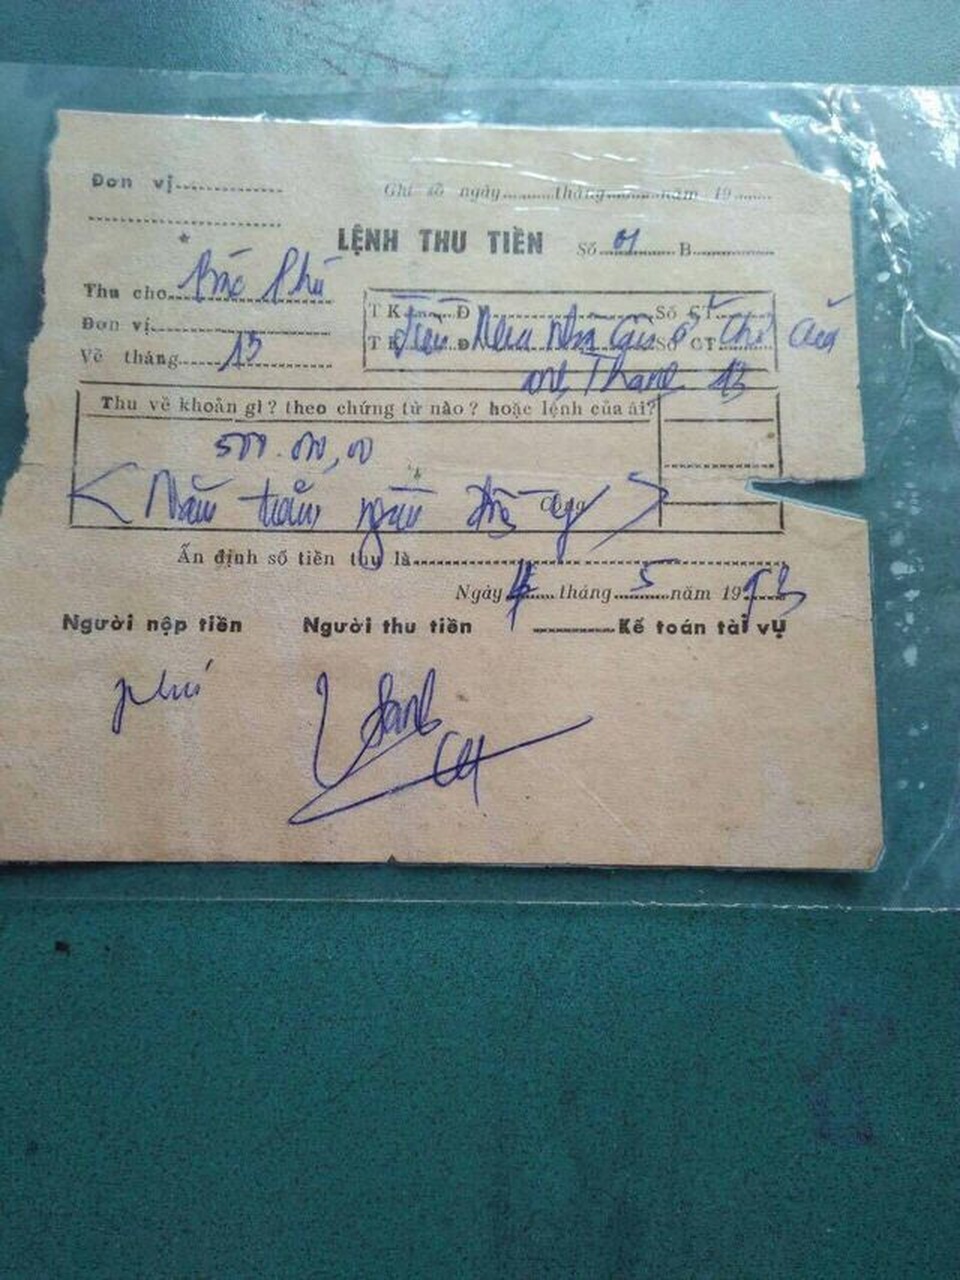 Đơn vị
Ghi sổ ngày tháng năm 19
LỆNH THU TIỀN Số 01 B
Thu cho Bác Phú
T K Đ Số CT
Đơn vị
T K Đ Số CT
Tiền nhà ở của
Về tháng 13
anh Thanh 13
Thu về khoản gì? theo chứng từ nào? hoặc lệnh của ai?
500.000,00
Năm trăm ngàn đồng
Cộng
Ấn định số tiền thu là
Ngày 4 tháng 5 năm 1993
Người nộp tiền Người thu tiền Kế toán tài vụ
phú